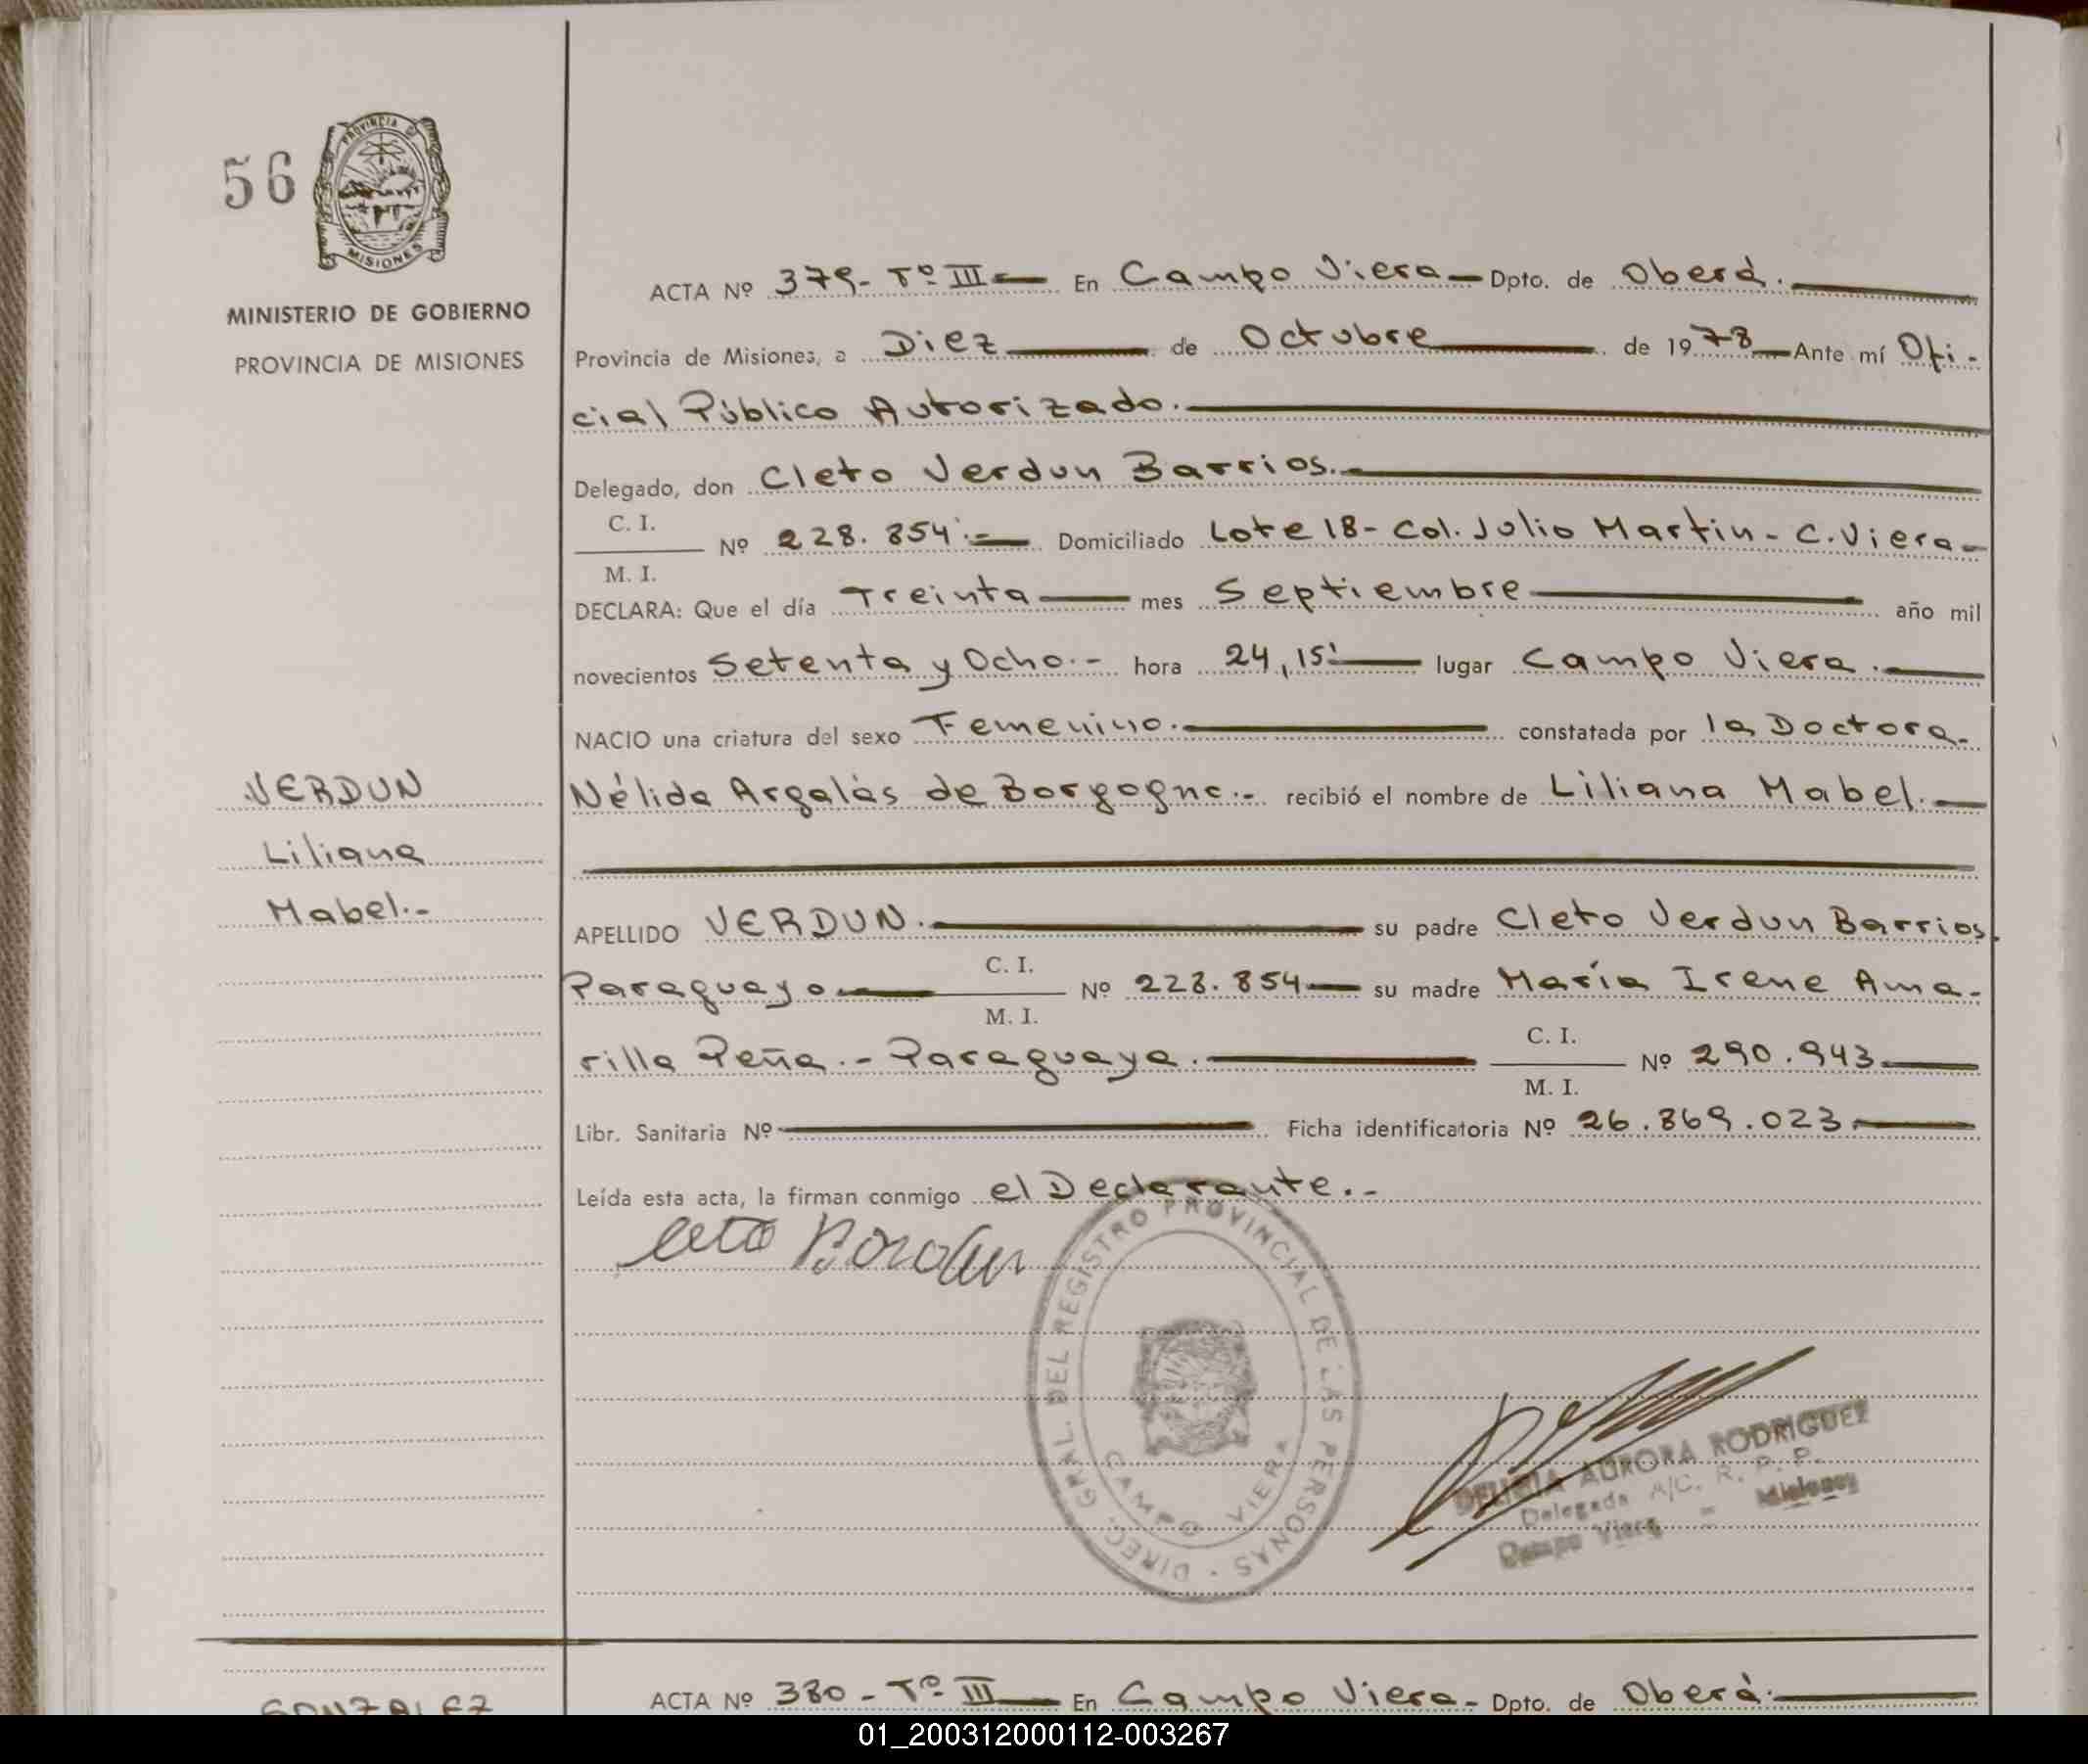 56
PROVINCIA DE
MISIONES
MINISTERIO DE GOBIERNO
PROVINCIA DE MISIONES
VERDUN
Liliana
Mabel.-
ACTA Nº 379- Tº III En Campo Viera Dpto. de Oberá.
Provincia de Misiones, a Diez de Octubre de 1978 Ante mí Ofi-
cial Público Autorizado.
Delegado, don Cleto Verdun Barrios.
C. I.
M. I.
Nº 228.854.- Domiciliado Lote 18- Col. Julio Martin - C. Viera-
DECLARA: Que el día Treinta mes Septiembre año mil
novecientos Setenta y Ocho.- hora 24,15' lugar Campo Viera.
NACIO una criatura del sexo Femenino. constatada por la Doctora
Nélida Argalás de Borgogne.- recibió el nombre de Liliana Mabel.
APELLIDO VERDUN. su padre Cleto Verdun Barrios,
Paraguayo C. I. / M. I. Nº 228.854 su madre María Irene Ama-
rilla Peña.- Paraguaya. C. I. / M. I. Nº 290.943
Libr. Sanitaria Nº Ficha identificatoria Nº 26.869.023
Leída esta acta, la firman conmigo el Declarante.-
DIREC. GRAL. DEL REGISTRO PROVINCIAL DE LAS PERSONAS
CAMPO VIERA
DELICIA AURORA RODRIGUEZ
Delegada A/C. R. P. P.
Campo Viera - Misiones
ACTA Nº 380 - Tº III En Campo Viera- Dpto. de Oberá.
GONZALEZ
01_200312000112-003267